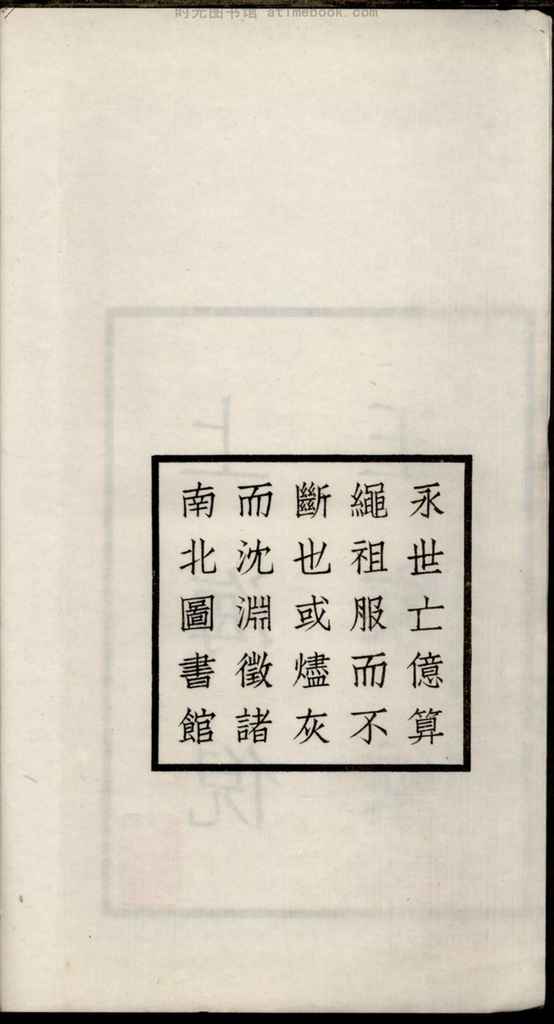 时光图书馆 atimebook.com
永世亡億算
繩祖服而不
斷也或燼灰
而沈淵徵諸
南北圖書館